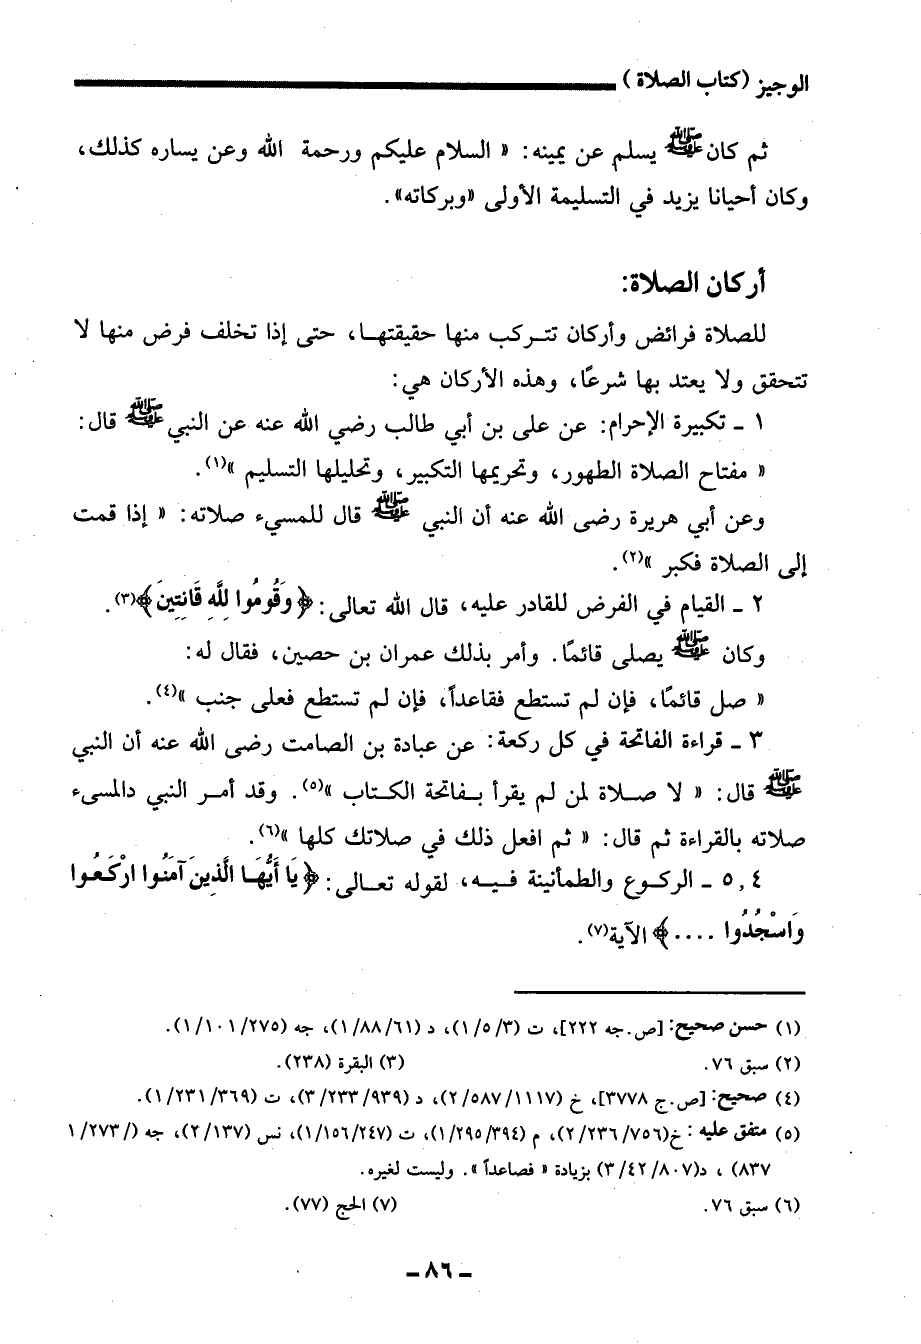 الوجيز (كتاب الصلاة )
ثم كان ﷺ يسلم عن يمينه: « السلام عليكم ورحمة الله وعن يساره كذلك،
وكان أحيانا يزيد في التسليمة الأولى «وبركاته».
أركان الصلاة:
للصلاة فرائض وأركان تتركب منها حقيقتها، حتى إذا تخلف فرض منها لا
تتحقق ولا يعتد بها شرعًا، وهذه الأركان هي:
١ ـ تكبيرة الإحرام: عن على بن أبي طالب رضي الله عنه عن النبي ﷺ قال:
« مفتاح الصلاة الطهور، وتحريمها التكبير، وتحليلها التسليم »(١).
وعن أبي هريرة رضى الله عنه أن النبي ﷺ قال للمسيء صلاته: « إذا قمت
إلى الصلاة فكبر »(٢).
٢ ـ القيام في الفرض للقادر عليه، قال الله تعالى: ﴿ وَقُومُوا لِلَّهِ قَانِتِينَ﴾(٣).
وكان ﷺ يصلى قائمًا. وأمر بذلك عمران بن حصين، فقال له:
« صل قائمًا، فإن لم تستطع فقاعداً، فإن لم تستطع فعلى جنب »(٤).
٣ ـ قراءة الفاتحة في كل ركعة: عن عبادة بن الصامت رضى الله عنه أن النبي
ﷺ قال: « لا صلاة لمن لم يقرأ بفاتحة الكتاب »(٥). وقد أمر النبي دالمسىء
صلاته بالقراءة ثم قال: « ثم افعل ذلك في صلاتك كلها »(٦).
٥,٤ ـ الركوع والطمأنينة فيه، لقوله تعالى: ﴿ يَا أَيُّهَا الَّذِينَ آمَنُوا ارْكَعُوا
وَاسْجُدُوا ....﴾ الآية(٧).
(١) حسن صحيح: [ص.جه ٢٢٢]، ت (١/٥/٣)، د (١/٨٨/٦١)، جه (١/١٠١/٢٧٥).
(٢) سبق ٧٦. (٣) البقرة (٢٣٨).
(٤) صحيح: [ص.ج ٣٧٧٨]، خ (٢/٥٨٧/١١١٧)، د (٣/٢٣٣/٩٣٩)، ت (١/٢٣١/٣٦٩).
(٥) متفق عليه : خ(٢/٢٣٦/٧٥٦)، م (١/٢٩٥/٣٩٤)، ت (١/١٥٦/٢٤٧)، نس (٢/١٣٧)، جه (/١/٢٧٣
٨٣٧) ، د(٣/٤٢/٨٠٧) بزيادة « فصاعداً ». وليست لغيره.
(٦) سبق ٧٦. (٧) الحج (٧٧).
ـ ٨٦ ـ